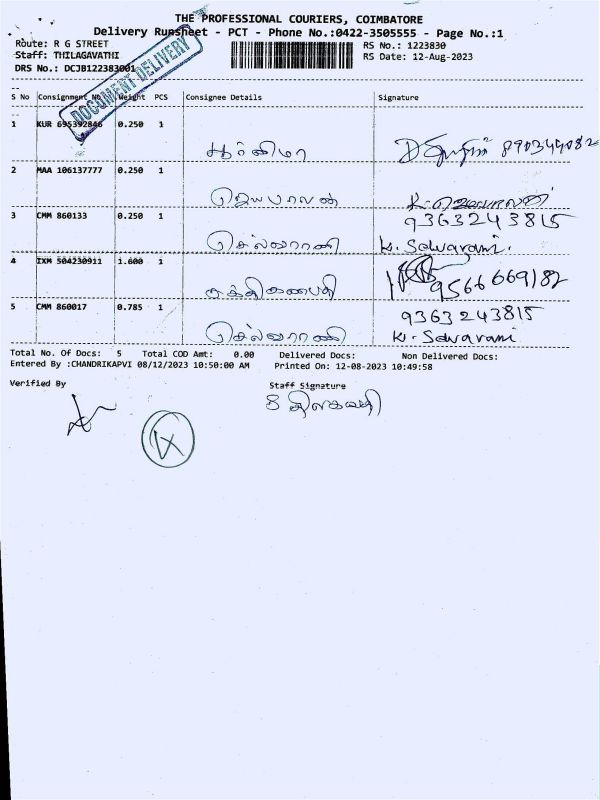 THE PROFESSIONAL COURIERS, COIMBATORE
Delivery Runsheet - PCT - Phone No.:0422-3505555 - Page No.:1
Route: R G STREET
RS No.: 1223830
Staff: THILAGAVATHI
RS Date: 12-Aug-2023
DRS No.: DCJB122383001
DOCUMENT DELIVERY
S No Consignment No Weight PCS Consignee Details Signature
1 KUR 695392846 0.250 1
2 MAA 106137777 0.250 1
ஜெயபாலன்
3 CMM 860133 0.250 1 9363243815
செல்வராணி K. Selvarani.
4 IXM 504230911 1.600 1 9566669182
சக்திகணபதி
5 CMM 860017 0.785 1 9363243815
செல்வராணி K. Selvarani
Total No. Of Docs: 5 Total COD Amt: 0.00 Delivered Docs: Non Delivered Docs:
Entered By :CHANDRIKAPVI 08/12/2023 10:50:00 AM Printed On: 12-08-2023 10:49:58
Verified By Staff Signature
S திலகவதி